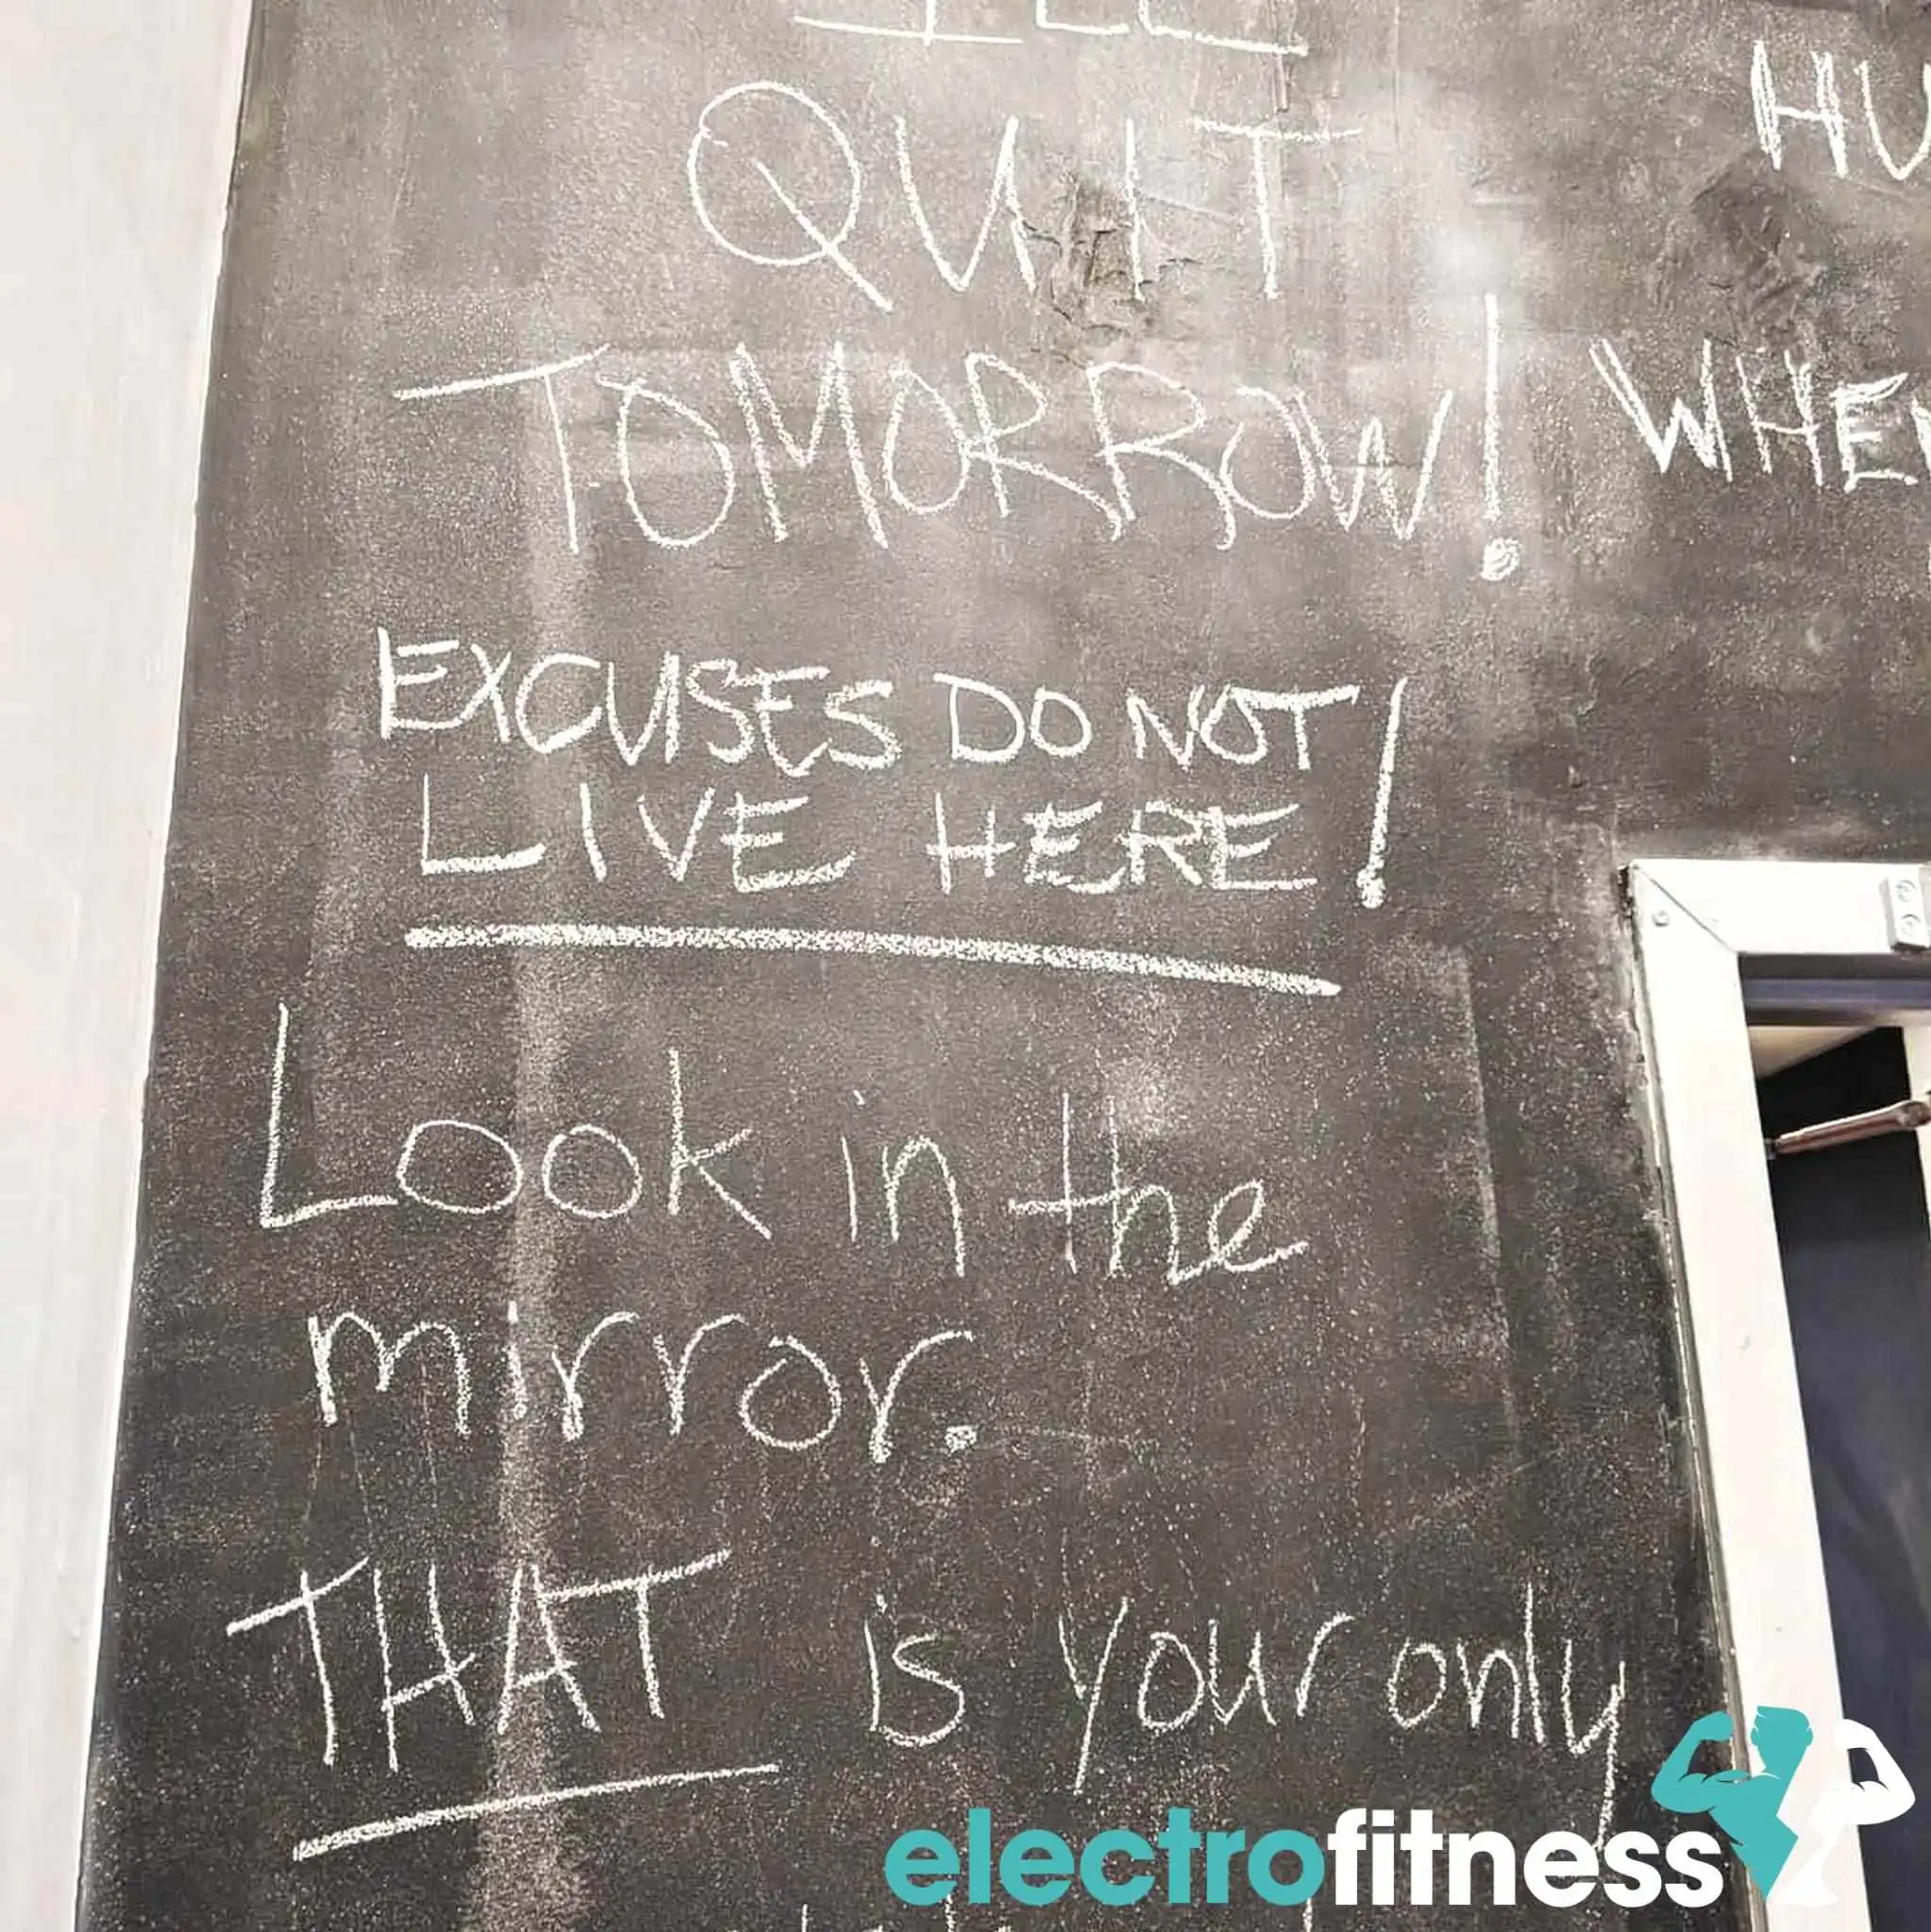 QUIT
TOMORROW!
EXCUSES DO NOT
LIVE HERE!
Look in the
mirror.
THAT is your only
HU
WHEN
electrofitness